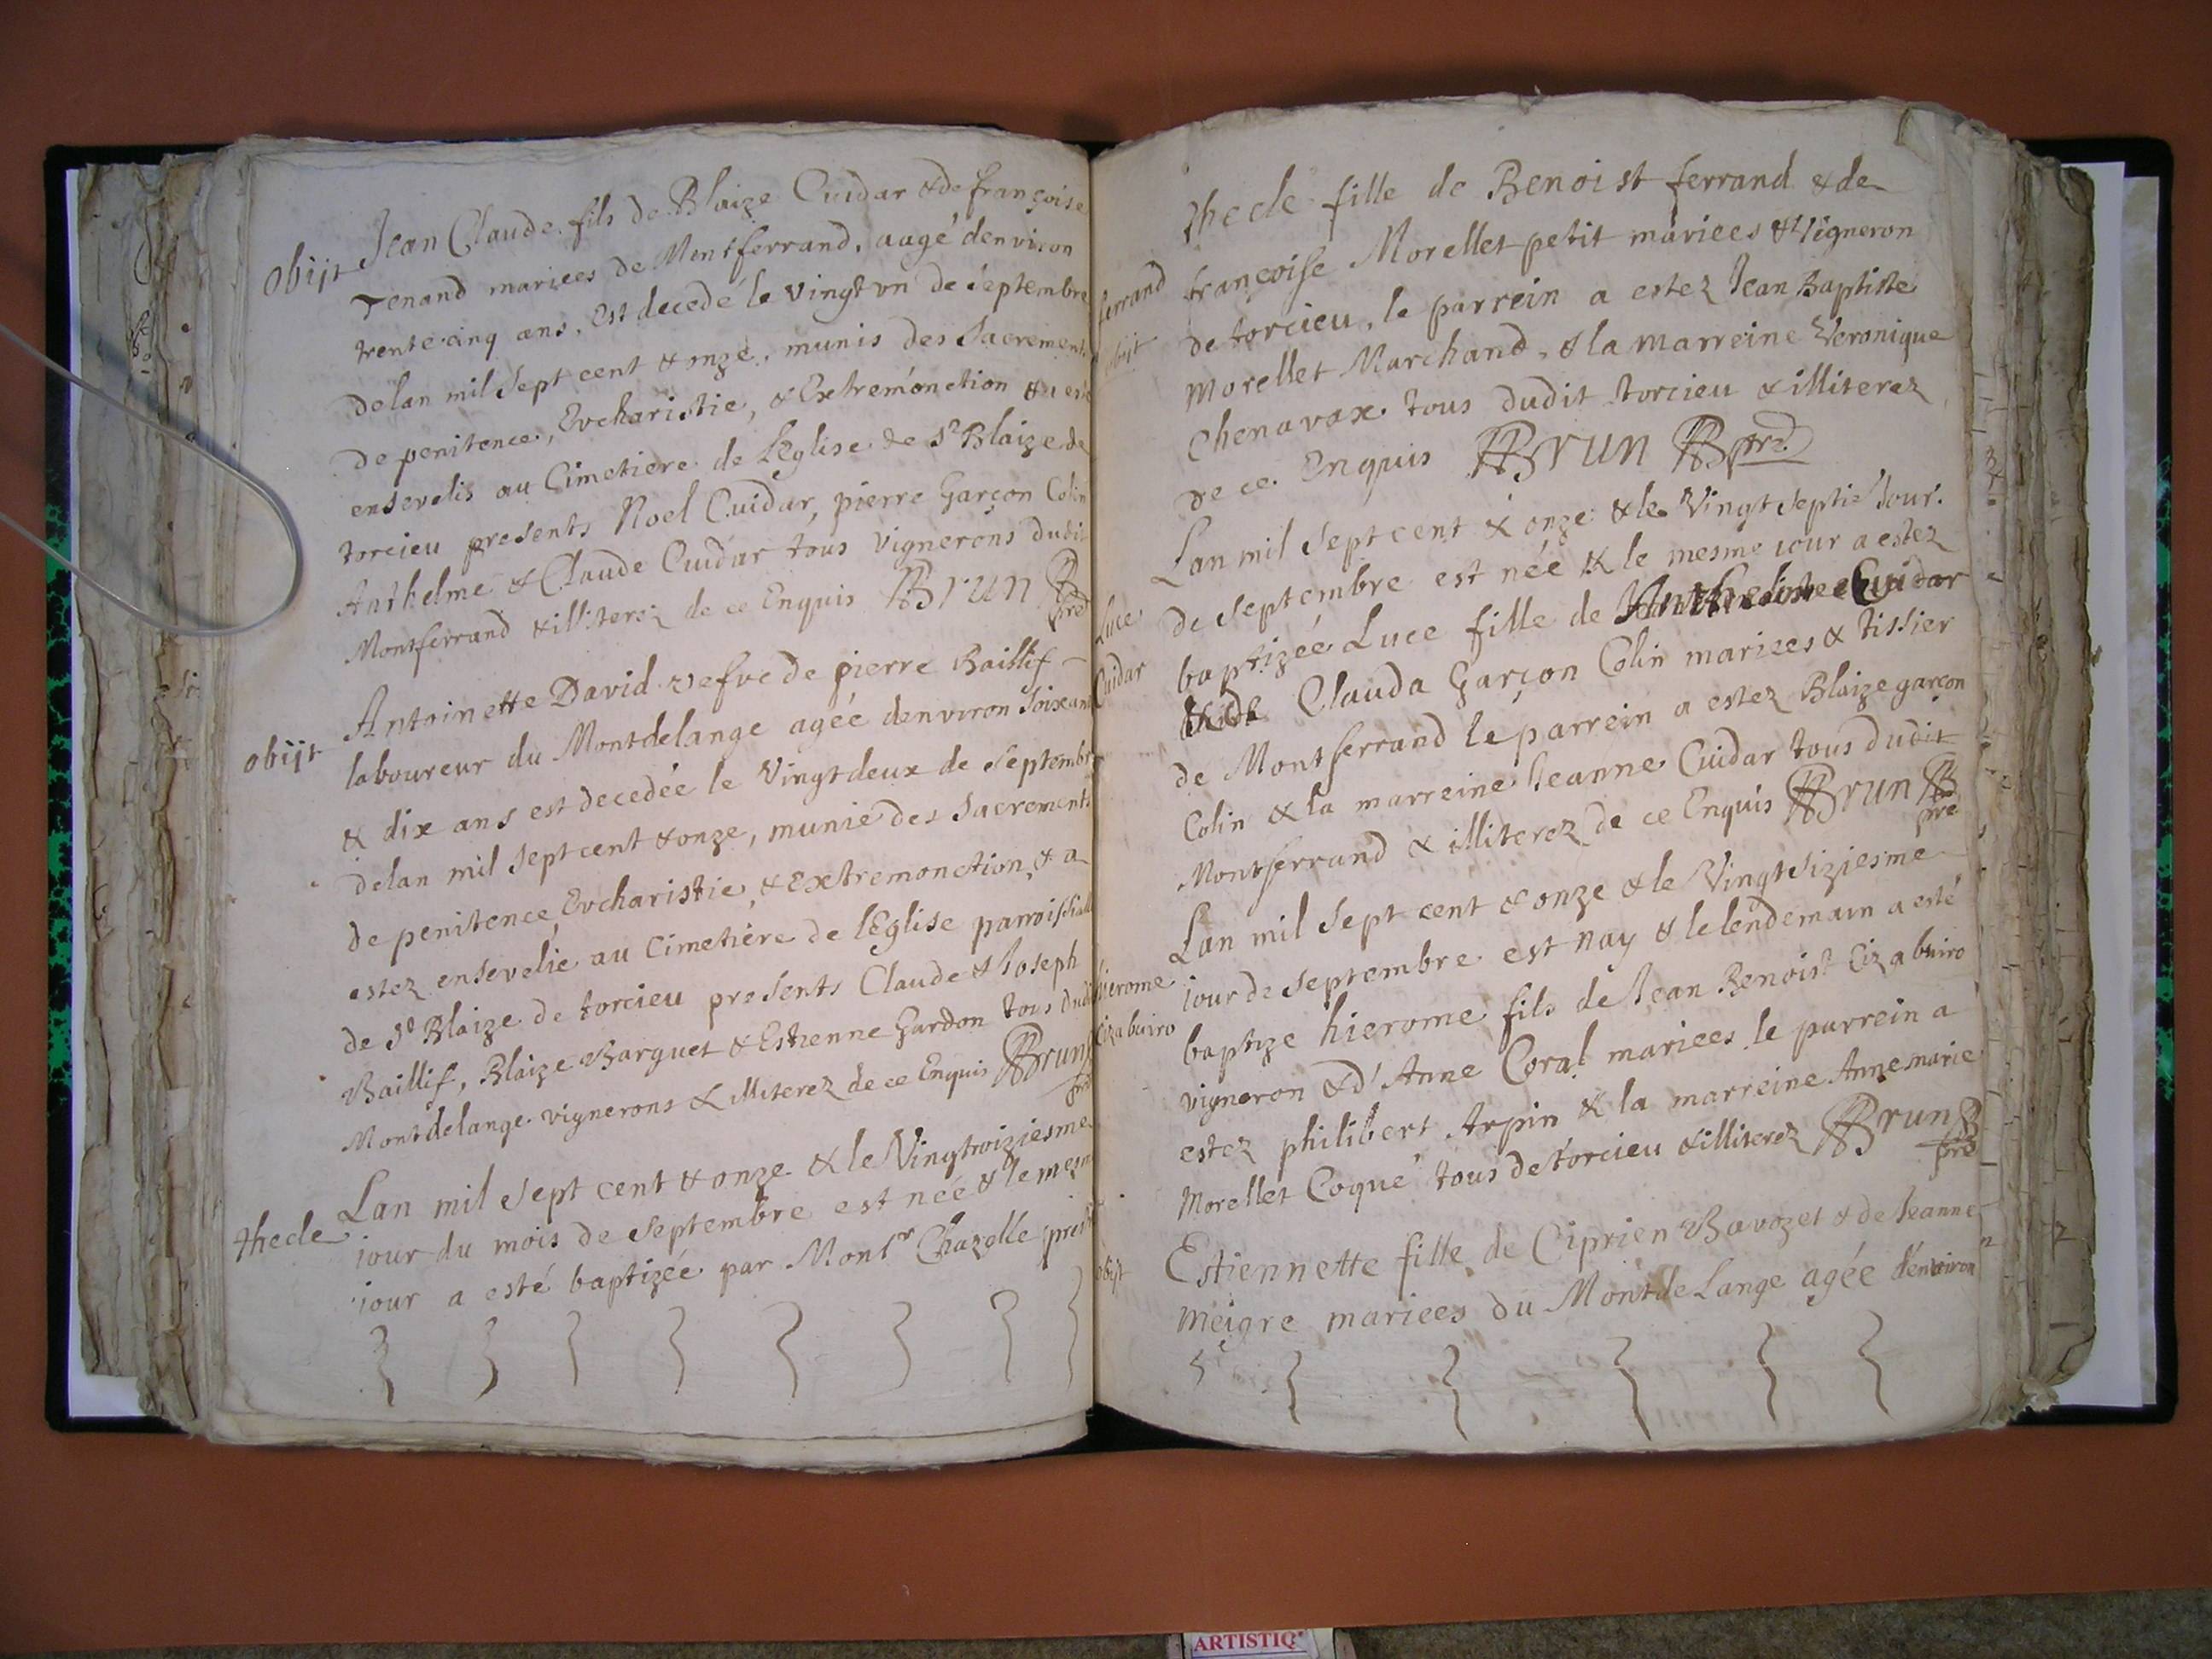 Jean Claude fils de Blaize Cuidar & de françoise
obijt
Tenand mariees de Montferrand, aagé denviron
trente cinq ans, Est decedé le vingt vn de septembre
delan mil sept cent & onze, munis des Sacrements
de penitence, Evcharistie, & Extremonction & a esté
ensevelis au Cimetiere de LEglise de St Blaize de
torcieu presents Noel Cuidar, pierre Garçon Colin
Anthelme & Claude Cuidar tous vignerons dudit
Montferrand & illiterez de ce Enquis Brun
pre
Antoinette David vefve de pierre Baillif
obijt
laboureur du Montdelange agée denviron soixante
& dix ans est decedée le Vingtdeux de septembre
delan mil sept cent & onze, munie des Sacrements
de penitence, Evcharistie, & Extremonction, & a
estez ensevelie au Cimetiere de lEglise parroissiale
de St Blaize de torcieu presents Claude & Joseph
Baillif, Blaize Barguet & Estienne Gardon tous dudit
Montdelange vignerons & illiterez de ce Enquis Brun
pre
Lan mil sept cent & onze & le Vingtroiziesme
thecle
jour du mois de septembre est née & le mesme
jour a esté baptizée par Monsr Chazelle
thecle fille de Benoist ferrand & de
ferrand
françoise Morellet petit mariees & Vigneron
obijt
de torcieu, le parrein a estez Jean Baptiste
Morellet Marchand, & la marreine Veronique
Chenavax tous dudit torcieu & illiterez
de ce Enquis Brun pre
Lan mil sept cent & onze & le Vingt septie Jour
de septembre est née & le mesme jour a estez
Luce
baptizée Luce fille de Cuidar
Cuidar
Clauda Garçon Colin mariees & tissier
de Montferrand le parrein a estez Blaize garçon
Colin & la marreine Jeanne Cuidar tous dudit
Montferrand & illiterez de ce Enquis Brun
pre
Lan mil sept cent & onze & le Vingtsiziesme
hierome
jour de septembre est nay & le lendemain a esté
Cizabuiro
baptize hierome fils de Jean Benoist Cizabuiro
vigneron & d'Anne Coral mariees le parrein a
estez philibert Arpin & la marreine Anne marie
Morellet Coque tous de torcieu & illiterez Brun
pre
Estiennette fille de Ciprien Bavozet & de Jeanne
obijt
Meigre mariees du Montde Lange agée denviron
ARTISTIQ